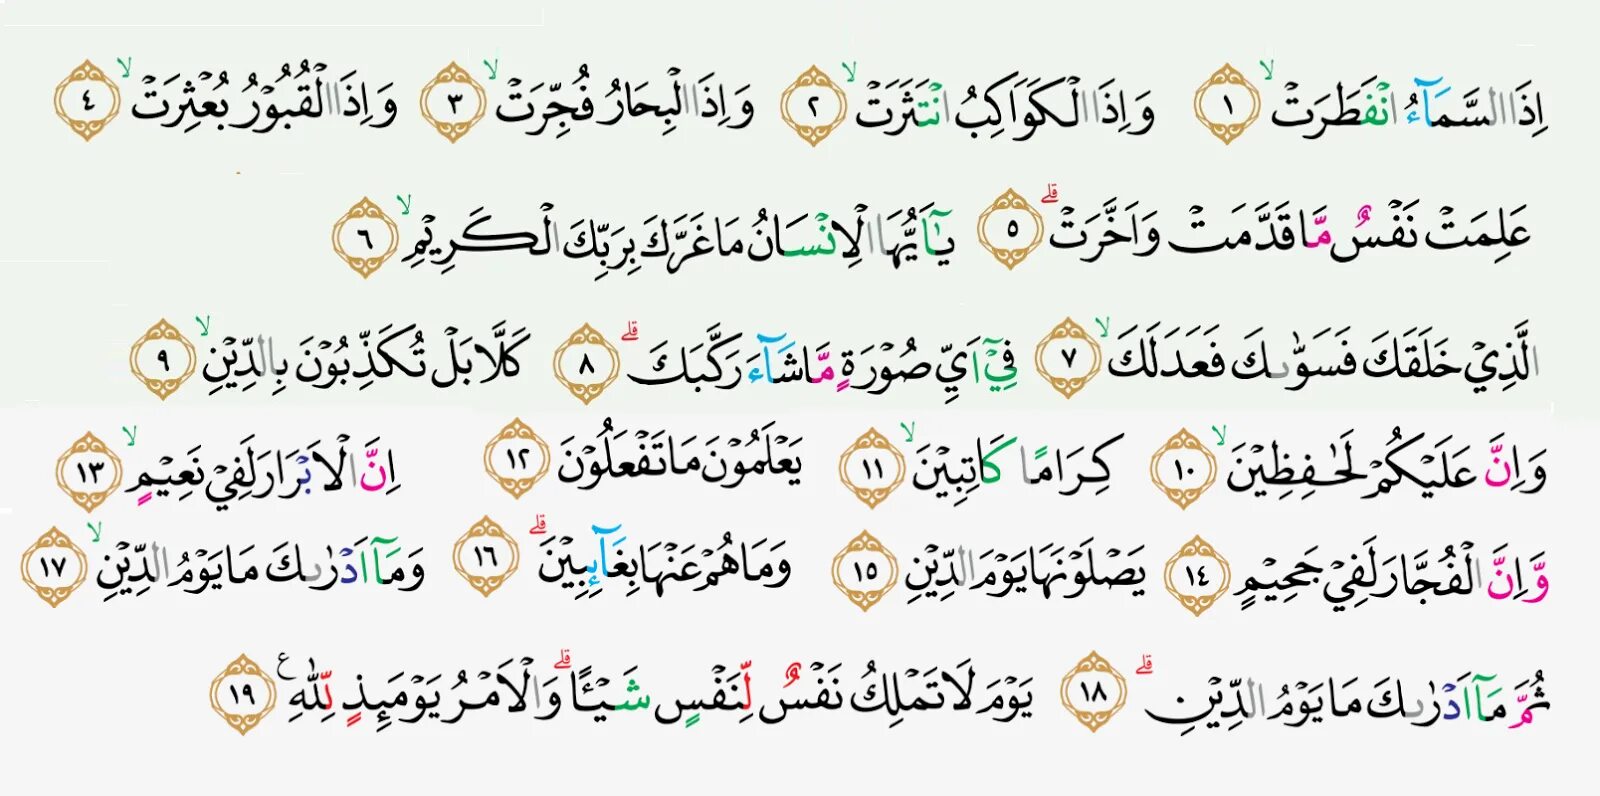 اِذَا السَّمَاۤءُ انْفَطَرَتْۙ ١ وَاِذَا الْكَوَاكِبُ انْتَثَرَتْۙ ٢ وَاِذَا الْبِحَارُ فُجِّرَتْۙ ٣ وَاِذَا الْقُبُوْرُ بُعْثِرَتْۙ ٤
عَلِمَتْ نَفْسٌ مَّا قَدَّمَتْ وَاَخَّرَتْۗ ٥ يٰٓاَيُّهَا الْاِنْسَانُ مَا غَرَّكَ بِرَبِّكَ الْكَرِيْمِۙ ٦
الَّذِيْ خَلَقَكَ فَسَوّٰىكَ فَعَدَلَكَۙ ٧ فِيْٓ اَيِّ صُوْرَةٍ مَّا شَاۤءَ رَكَّبَكَۗ ٨ كَلَّا بَلْ تُكَذِّبُوْنَ بِالدِّيْنِۙ ٩
وَاِنَّ عَلَيْكُمْ لَحٰفِظِيْنَۙ ١٠ كِرَامًا كَاتِبِيْنَۙ ١١ يَعْلَمُوْنَ مَا تَفْعَلُوْنَ ١٢ اِنَّ الْاَبْرَارَ لَفِيْ نَعِيْمٍۙ ١٣
وَّاِنَّ الْفُجَّارَ لَفِيْ جَحِيْمٍ ١٤ يَصْلَوْنَهَا يَوْمَ الدِّيْنِ ١٥ وَمَا هُمْ عَنْهَا بِغَاۤىِٕبِيْنَۗ ١٦ وَمَآ اَدْرٰىكَ مَا يَوْمُ الدِّيْنِۙ ١٧
ثُمَّ مَآ اَدْرٰىكَ مَا يَوْمُ الدِّيْنِۗ ١٨ يَوْمَ لَا تَمْلِكُ نَفْسٌ لِّنَفْسٍ شَيْـًٔاۗ وَالْاَمْرُ يَوْمَىِٕذٍ لِّلّٰهِ ࣖ ١٩